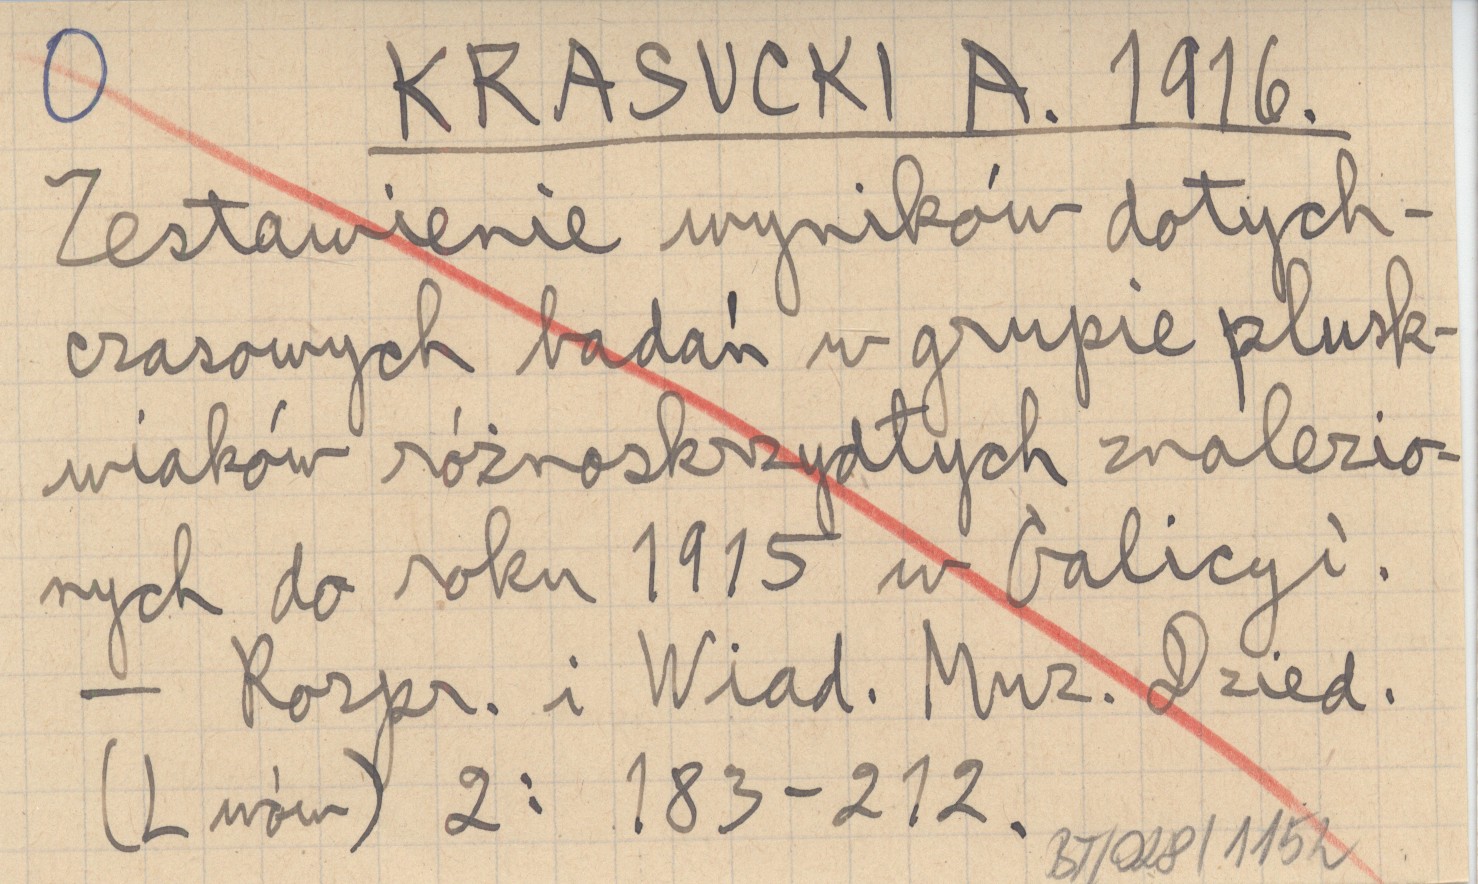 O
KRASUCKI A. 1916.
Zestawienie wyników dotych-
czasowych badań w grupie plusk-
wiaków różnoskrzydłych znalezio-
nych do roku 1915 w Galicyi.
— Rozpr. i Wiad. Muz. Dzied.
(Lwów) 2: 183-212.
BT/028/1152